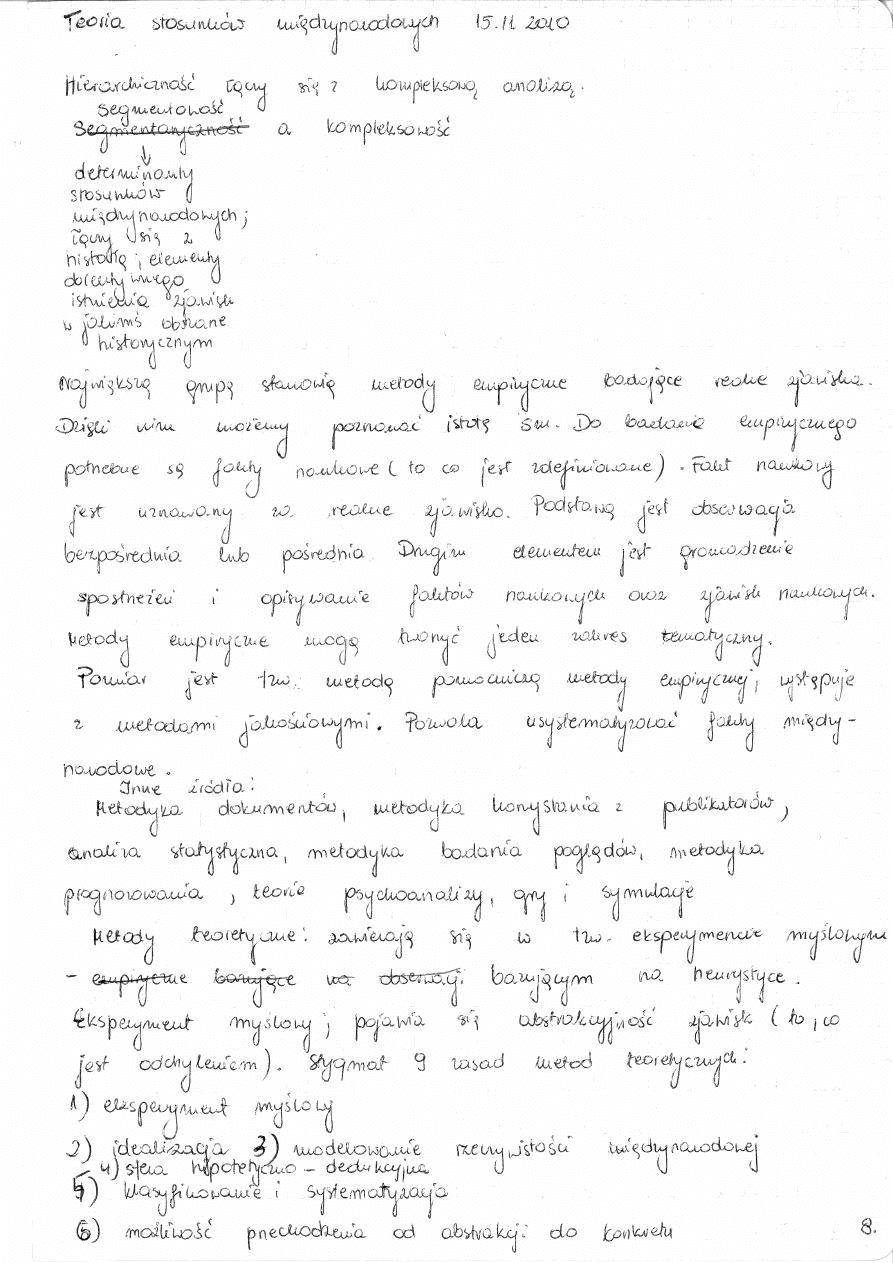 Teoria stosunków międzynarodowych 15.11 2010
Hierarchiczność łączy się z kompleksową analizą.
Segmentowość
Segmentaryczność a kompleksowość
↓
determinanty
stosunków
międzynarodowych;
łączy się z
historią; elementy
obiektywnego
istnienia zjawisk
w jakimś obszarze
historycznym
Największą grupę stanowią metody empiryczne badające realne zjawiska.
Dzięki nim możemy poznawać istotę sm. Do badania empirycznego
potrzebne są fakty naukowe (to co jest zdefiniowane). Fakt naukowy
jest uznawany za realne zjawisko. Podstawą jest obserwacja
bezpośrednia lub pośrednia. Drugim elementem jest gromadzenie
spostrzeżeń i opisywanie faktów naukowych oraz zjawisk naukowych.
Metody empiryczne mogą tworzyć jeden zakres tematyczny.
Pomiar jest tzw. metodą pomocniczą metody empirycznej, występuje
z metodami jakościowymi. Pozwala usystematyzować fakty między-
narodowe.
Inne źródła:
Metodyka dokumentów, metodyka korzystania z publikatorów,
analiza statystyczna, metodyka badania poglądów, metodyka
prognozowania, teorie psychoanalizy, gry i symulacje
Metody teoretyczne: zawierają się w tzw. eksperymencie myślowym
- empiryczne bazujące na obserwacji bazującym na heurystyce.
Eksperyment myślowy; pojawia się abstrakcyjność zjawisk (to, co
jest odchyleniem). Stygmat 9 zasad metod teoretycznych:
1) eksperyment myślowy
2) idealizacja 3) modelowanie rzeczywistości międzynarodowej
4) sfera hipotetyczno - dedukcyjna
5) klasyfikowanie i systematyzacja
6) możliwość przechodzenia od abstrakcji do konkretu
8.